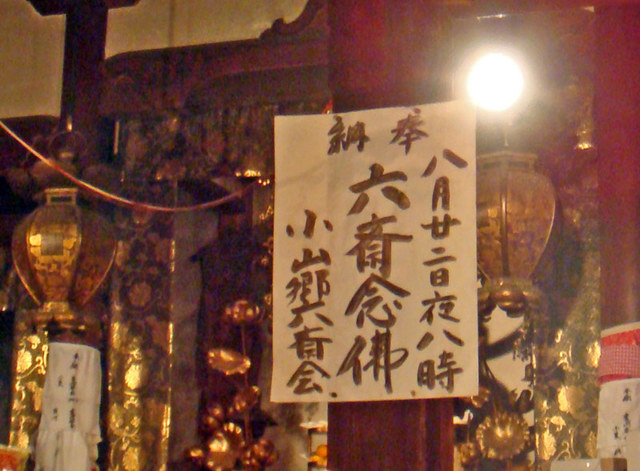 奉納
八月廿二日夜八時
六斎念佛
小山郷六斎会